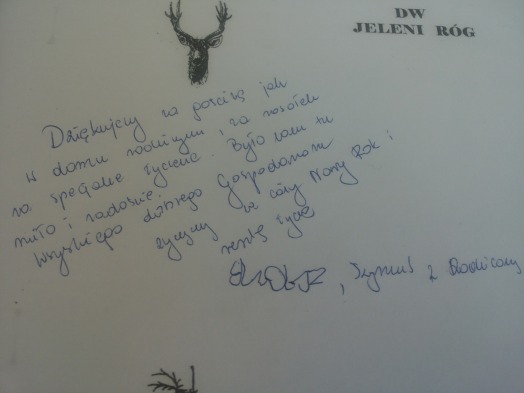 DW
JELENI RÓG
Dziękujemy za gościnę jak
w domu rodzinnym i za
na specjalne życzenie. Było nam tu
miło i radośnie.
Wszystkiego dobrego Gospodarzom
życzymy na cały Nowy Rok i
resztę życia
, Szymuś z Rodzicami